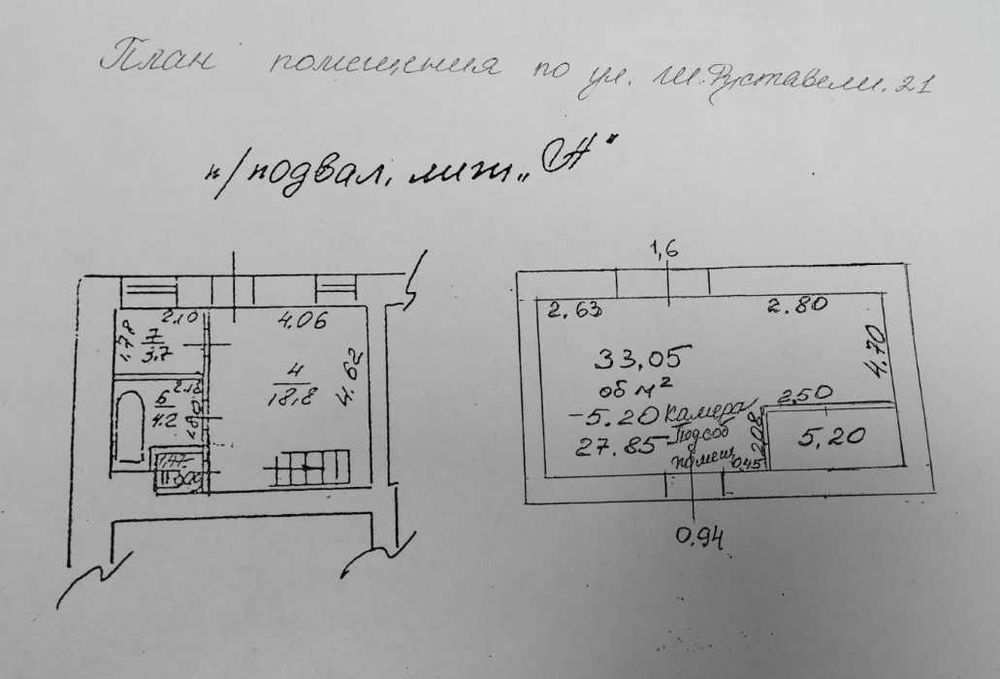 План помещения по ул. Ш.Руставели. 21
п/подвал, лит „Н"
2.10
4.06
1.78
7
3.7
4
18,8
4.62
2.18
6
4.2
1,6
2.63
2.80
33,05
об м²
4.70
-5.20 камера
27.85 - Подсоб
помещ
2,50
2,08
5,20
0,45
0.94